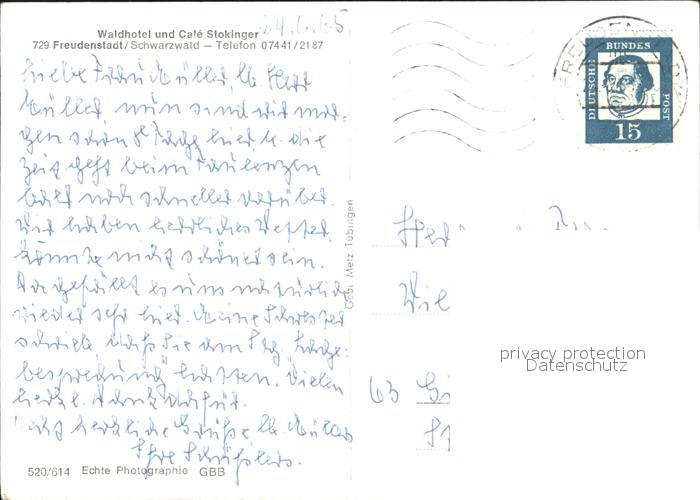 24.6.65
Waldhotel und Café Stokinger
729 Freudenstadt/Schwarzwald — Telefon 07441/2187
Liebe Frau Müller, lb. Herr
Müller, nun sind wir mor-
gen schon 8 Tage hier u. die
Zeit geht beim Faulenzen
bald noch schneller vorüber.
Wir haben herrliches Wetter,
könnte nicht schöner sein.
Da gefällt es uns natürlich
wieder sehr hier. Meine Schwester
schrieb daß Sie am Stg.
besprechung hatten. Vielen
herzl. Dank dafür.
herzliche Grüße lb. Müllers
Ihre Schüßlers.
520/614 Echte Photographie GBB
Gebr. Metz, Tübingen
DEUTSCHE
BUNDES
POST
15
Her
Wil
63 Gi
privacy protection
Datenschutz